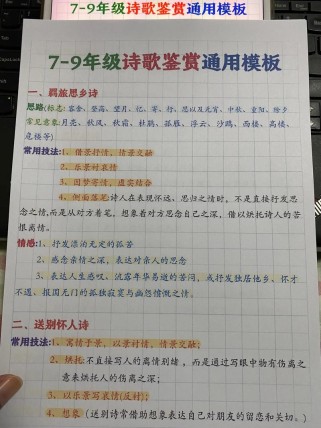 7-9年级诗歌鉴赏通用模板
7-9年级诗歌鉴赏通用模板
一、羁旅思乡诗
思路(标志:客舍、登高、望月、忆、寄、行、思以及元宵、中秋、重阳、除夕
常见意象:月亮、秋风、秋霜、杜鹃、孤雁、浮云、沙鸥、西楼、高楼、
危楼等)
常用技法:1、借景抒情,情景交融
2、乐景衬哀情
3、因梦寄情,虚实结合
4、侧面落笔诗人在表现怀远、思归之情时,不是直接行发思
念之情,而是从对方着笔,想象着对方思念自己之深,借以烘托诗人的苦
恨离情。
情感:1、抒发漂泊无定的孤苦
2、感念亲情之深,表达对亲人的思念
3、表达人生感叹、流露年华易逝的苦闷,或抒发独居他乡、怀才
不遇、报国无门的孤独寂寞与幽怨愤慨之情。
二、送别怀人诗
常用技法:1、寓情于景,以景衬情,情景交融;
2、烘托:不直接写人的离情别绪,而是通过写眼中物有伤离之
意来烘托人的伤离之深;
3、以乐景写哀情(反衬);
4、想象(送别诗常借助想象表达自己对朋友的留恋和关切。)